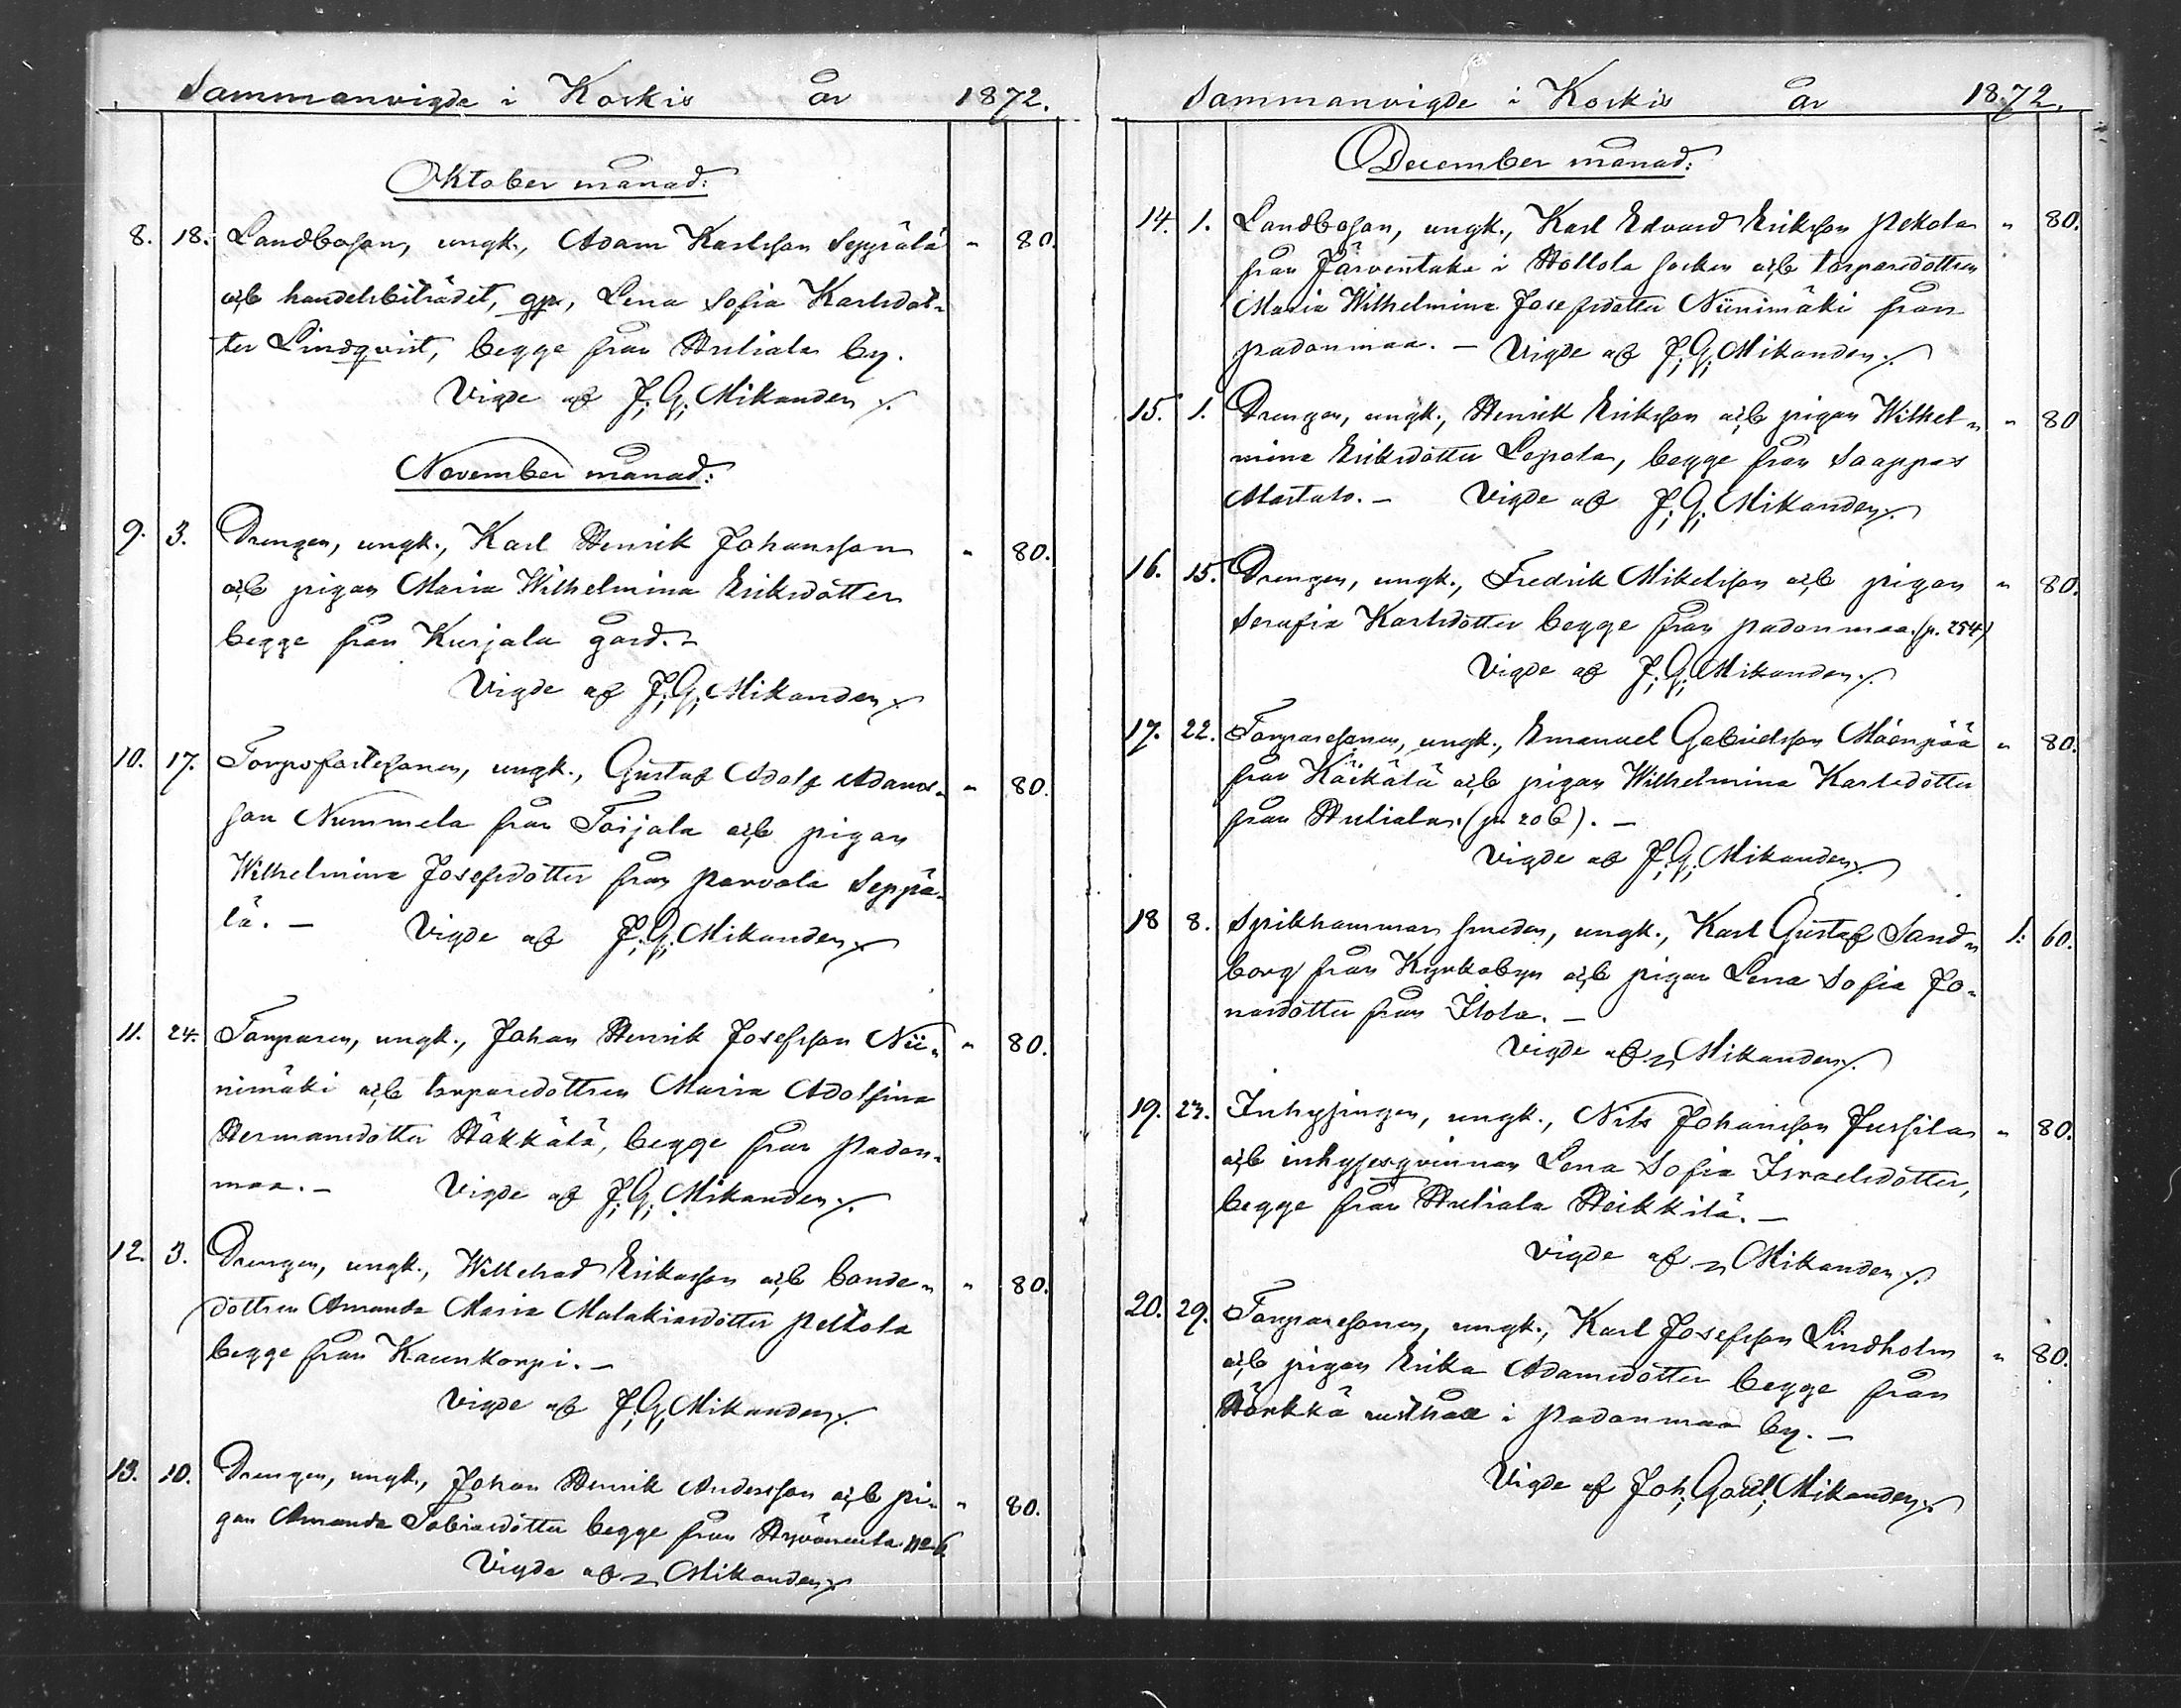 Sammanvigde i Koskis år 1872.
Oktober månad:
8. 18. Landboson, ungk., Adam Karlsson Seppälä " 80.
och handelsbiträdet, gp, Lena Sofia Karlsdot-
ter Lindqvist, begge från Huljala by.
Vigde af J. G. Mikander.
November månad:
9. 3. Drengen, ungk., Karl Henrik Johansson " 80.
och pigan Maria Wilhelmina Eriksdotter
begge från Kurjala gård. -
Vigde af J. G. Mikander
10. 17. Torpofostersonen, ungk., Gustaf Adolf Adams- " 80.
son Nummela från Toijala och pigan
Wilhelmina Josefsdotter från Porvola Seppä-
lä. - Vigde af J. G. Mikander
11. 24. Torparen, ungk., Johan Henrik Josefsson Nii- " 80.
nimäki och torparedottren Maria Adolfina
Hermansdotter Häkkälä, begge från Padan-
maa. - Vigde af J. G. Mikander.
12. 3. Drengen, ungk., Willehad Eriksson och bonde- " 80.
dottren Amanda Maria Malakiasdotter Peltola
begge från Kaunkorpi. -
Vigde af J. G. Mikander.
13. 10. Drengen, ungk., Johan Henrik Andersson och pi- " 80.
gan Amanda Tobiasdotter begge från Hyväneula
Vigde af Mikander
Sammanvigde i Koskis år 1872.
December månad:
14. 1. Landboson, ungk., Karl Edvard Eriksson Pekola " 80.
från Järventaka i Hollola socken och torparedottren
Maria Wilhelmina Josefsdotter Niinimäki från
Padanmaa. - Vigde af J. G. Mikander.
15. 1. Drengen, ungk., Henrik Eriksson och pigan Wilhel- " 80
mina Eriksdotter Lepola, begge från Saappas
Alastalo. - Vigde af J. G. Mikander.
16. 15. Drengen, ungk., Fredrik Mikelsson och pigan " 80.
Serafia Karlsdotter begge från Padanmaa. (p. 254)
Vigde af J. G. Mikander.
17. 22. Torparesonen, ungk., Emanuel Gabrielsson Mäenpää " 80.
från Käikälä och pigan Wilhelmina Karlsdotter
från Huljala. (p. 206). -
Vigde af J. G. Mikander.
18 8. Spikhammarsmeden, ungk., Karl Gustaf Sand- 1: 60.
borg från Kyrkobyn och pigan Lena Sofia Jo-
nasdotter från Etola. -
Vigde af Mikander.
19. 23. Inhysingen, ungk., Nils Johansson Jussila " 80.
och inhysesqvinnan Lena Sofia Israelsdotter,
begge från Huljala Heikkilä. -
Vigde af Mikander.
20. 29. Torparesonen, ungk., Karl Josefsson Lindholm " 80.
och pigan Erika Adamsdotter begge från
Härkkä rusthåll i Padanmaa by. -
Vigde af Joh. Gottl. Mikander